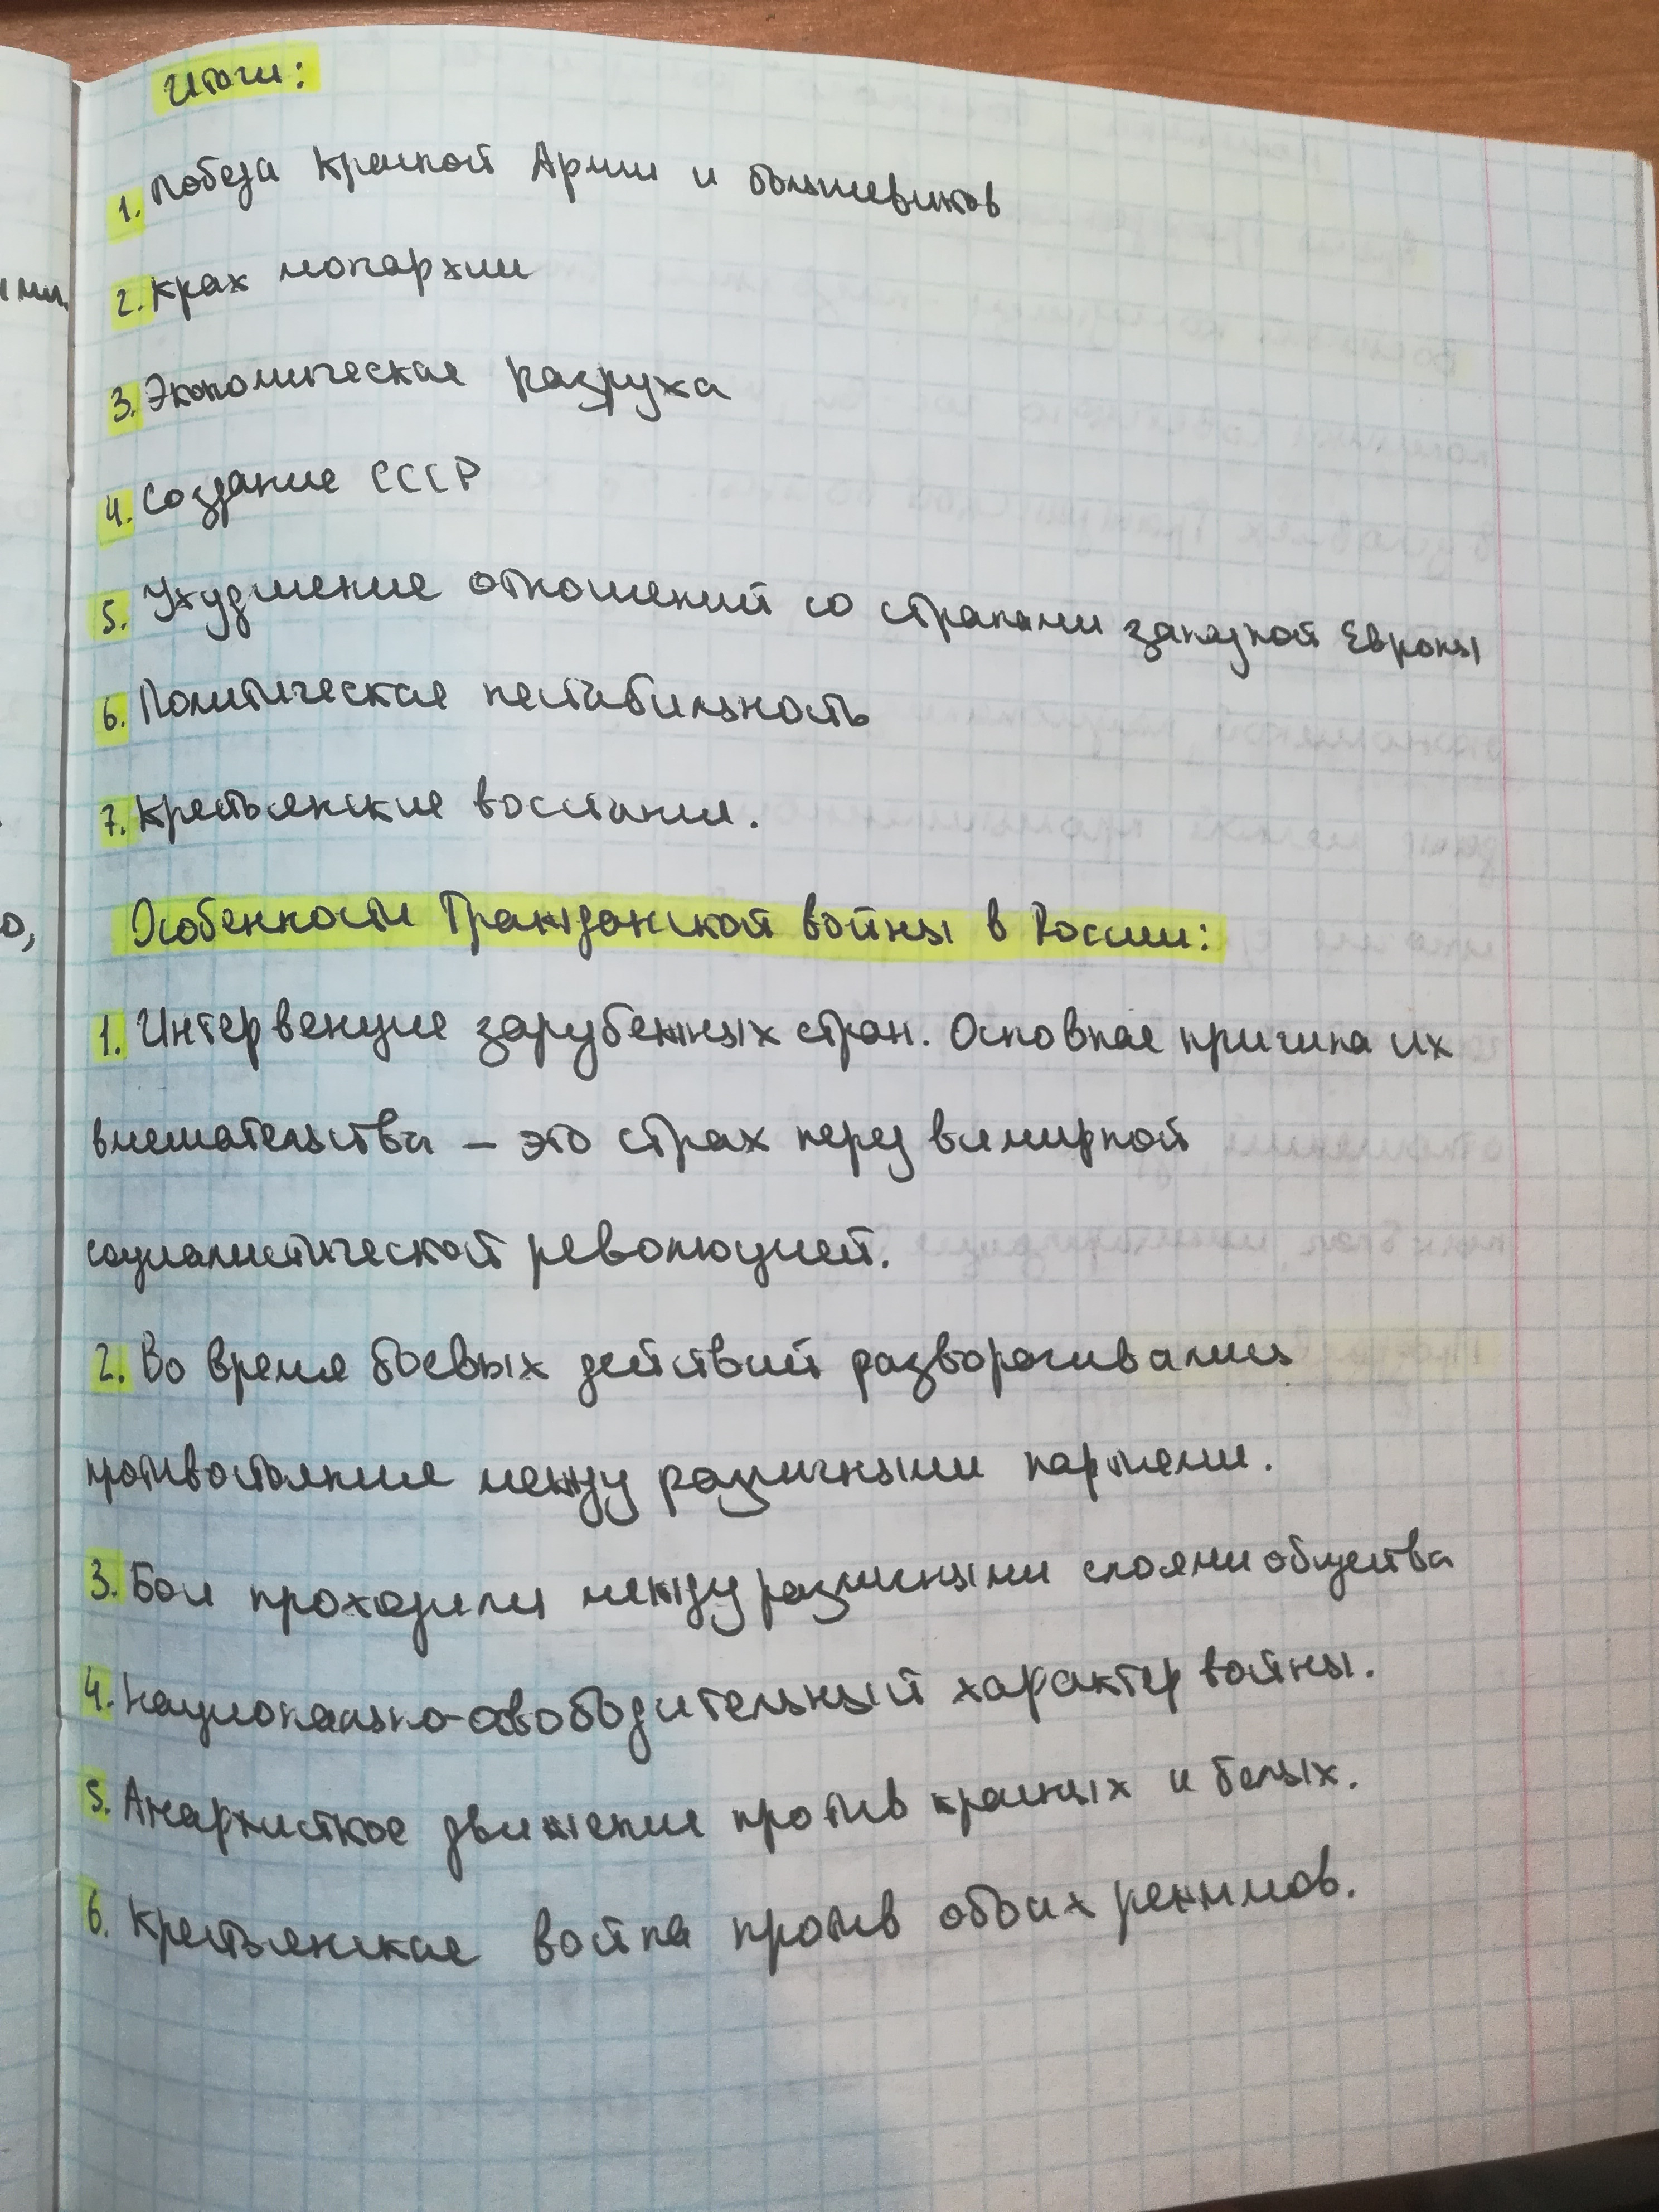 Итоги:
1. Победа Красной Армии и большевиков
2. Крах монархии
3. Экономическая разруха
4. Создание СССР
5. Ухудшение отношений со странами западной Европы
6. Политическая нестабильность
7. Крестьянские восстания.
Особенности Гражданской войны в России:
1. Интервенция зарубежных стран. Основная причина их
вмешательства – это страх перед всемирной
социалистической революцией.
2. Во время боевых действий разворачивались
противостояние между различными партиями.
3. Бои проходили между различными слоями общества
4. Национально-освободительный характер войны.
5. Анархисткое движение против красных и белых.
6. Крестьянская война против обоих режимов.